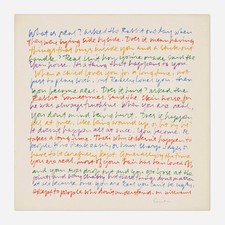 What is real? asked the Rabbit one day when
they were laying side by side. Does it mean having
things that buzz inside you and a stick-out
handle? Real isn't how you're made, said the
Skin Horse. It's a thing that happens to you.
When a child loves you for a long time, not
just to play with, but Really loves you, then
you become real. Does it hurt? asked the
Rabbit. Sometimes, said the Skin Horse, for
he was always truthful. When you are real,
you don't mind being hurt. Does it happen
all at once, like being wound up, or bit by bit?
It doesn't happen all at once. You become. It
takes a long time. That's why it doesn't often happen to
people who break easily, or have sharp edges, or
have to be carefully kept. Generally, by the time
you are real, most of your hair has been loved off
and your eyes drop out and you get loose in the
joints and very shabby. But these things don't matter
because once you are Real you can't be ugly,
except to people who don't understand. m. williams